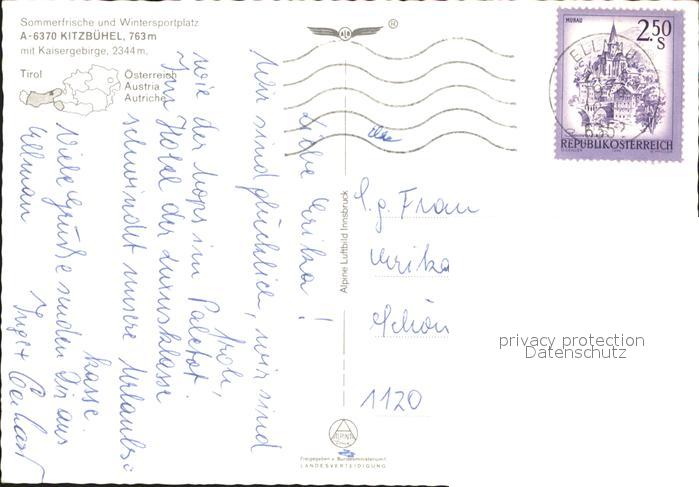 Sommerfrische und Wintersportplatz
A-6370 KITZBÜHEL, 763m
mit Kaisergebirge, 2344m.
Tirol
Österreich
Austria
Autriche
ALO
®
MURAU
2.50
S
REPUBLIK ÖSTERREICH
ELLMAU
6352
Liebe Erika!
Wir sind glücklich, wir sind
froh,
wie der Mops im Paletot.
Im Hotel der Luxusklasse
schwindet unsere Urlaubs-
kasse.
Viele Grüße senden Dir aus
Ellmau
Inge + Gerhard
S.g. Frau
Erika
Schön
1120
Alpine Luftbild Innsbruck
privacy protection
Datenschutz
ALPINE
Freigegeben v. Bundesministerium f.
LANDESVERTEIDIGUNG